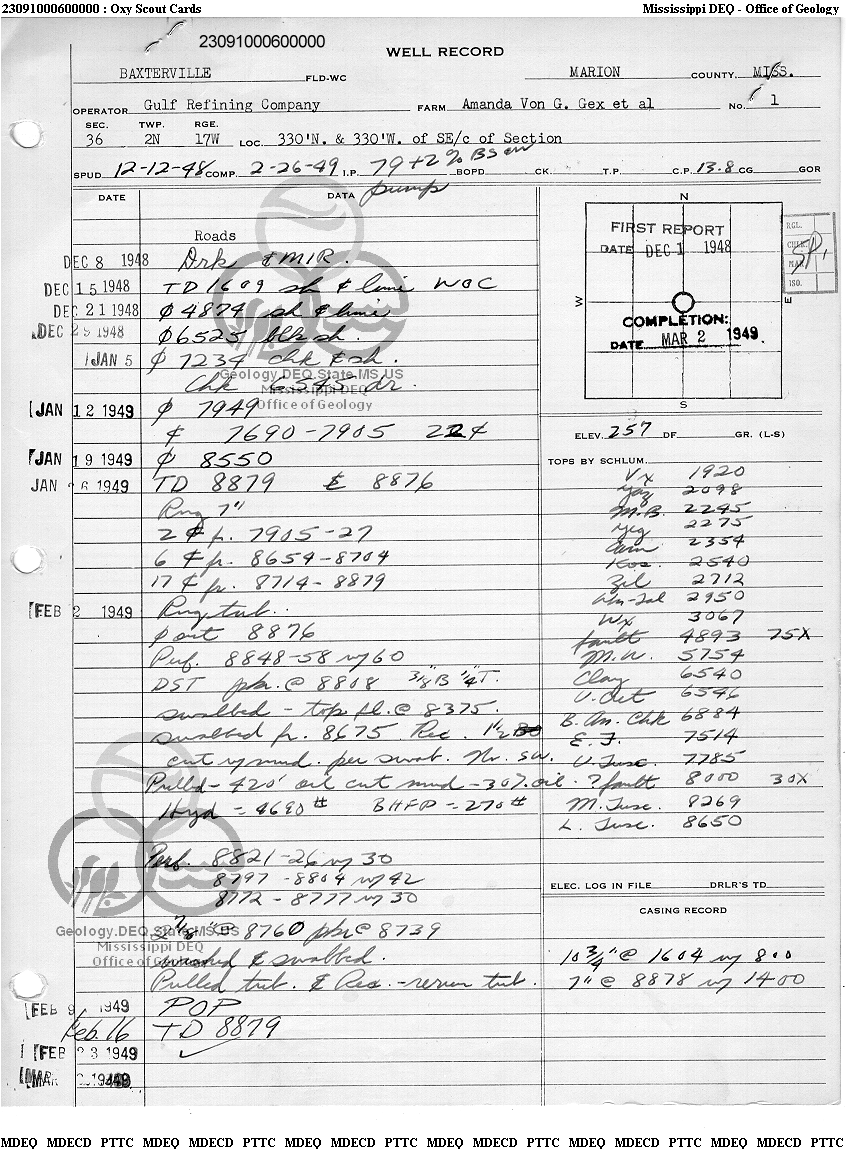 23091000600000 : Oxy Scout Cards
Mississippi DEQ - Office of Geology
23091000600000
WELL RECORD
BAXTERVILLE FLD-WC MARION COUNTY, MISS.
OPERATOR Gulf Refining Company FARM Amanda Von G. Gex et al No. 1
SEC. TWP. RGE.
36 2N 17W LOC. 330'N. & 330'W. of SE/c of Section
SPUD 12-12-48 COMP. 2-26-49 I.P. 79 + 2% BS BOPD CK. T.P. C.P. 13.8 CG GOR
pump
DATE DATA
Roads
DEC 8 1948 Drk & MIR.
DEC 15 1948 TD 1609 sh & lime WOC
DEC 21 1948 ϕ 4874 sh & lime
DEC 25 1948 ϕ 6525 blk sh.
JAN 5 ϕ 7234 chk & sh.
Chk 6545 dr.
Geology.DEQ.State.MS.US
Mississippi DEQ
Office of Geology
JAN 12 1949 ϕ 7949
¢ 7690-7905 22¢
JAN 19 1949 ϕ 8550
JAN 26 1949 TD 8879 E 8876
Rng 7"
2 ¢ fr. 7905-27
6 ¢ fr. 8654-8704
17 ¢ fr. 8714-8879
FEB 2 1949 Rng tub.
ϕ out 8876
Perf. 8848-58 w/60
DST pkr. @ 8808 3/8"B 1/4"T.
swabbed - top fl. @ 8375.
swabbed fr. 8675 Rec. 1 1/2
cut w/ mud. per swab. Nr. SW.
Pulled - 420' oil cut mud - 30% oil.
Hyd = 4690# BHFP = 270#
Perf. 8821-26 w/ 30
8797-8804 w/ 42
8772-8777 w/ 30
2 7/8" @ 8760 pkr @ 8739
Geology.DEQ.State.MS.US
Mississippi DEQ
Office of Geology
washed & swabbed.
Pulled tub. & Rec. - rerun tub.
FEB 9 1949 POP
Feb. 16 TD 8879
FEB 23 1949 ✓
MAR 2 1949
N
FIRST REPORT
DATE DEC 1 1948
W E
COMPLETION:
DATE MAR 2 1949
S
RGL.
CHK.
MAR
ISO.
ELEV. 257 DF GR. (L-S)
TOPS BY SCHLUM.
Vx 1920
Yaz 2098
M.B. 2245
Yeg 2275
2354
Kos. 2540
Zil 2712
2950
Wx 3067
fault 4893 75X
M.W. 5754
Clay 6540
U. Eut 6546
B. An. Chk 6884
E.F. 7514
U. Tusc. 7785
? fault 8000 30X
M. Tusc. 8269
L. Tusc. 8650
ELEC. LOG IN FILE DRLR'S TD
CASING RECORD
10 3/4" @ 1604 w/ 800
7" @ 8878 w/ 1400
MDEQ MDECD PTTC MDEQ MDECD PTTC MDEQ MDECD PTTC MDEQ MDECD PTTC MDEQ MDECD PTTC MDEQ MDECD PTTC